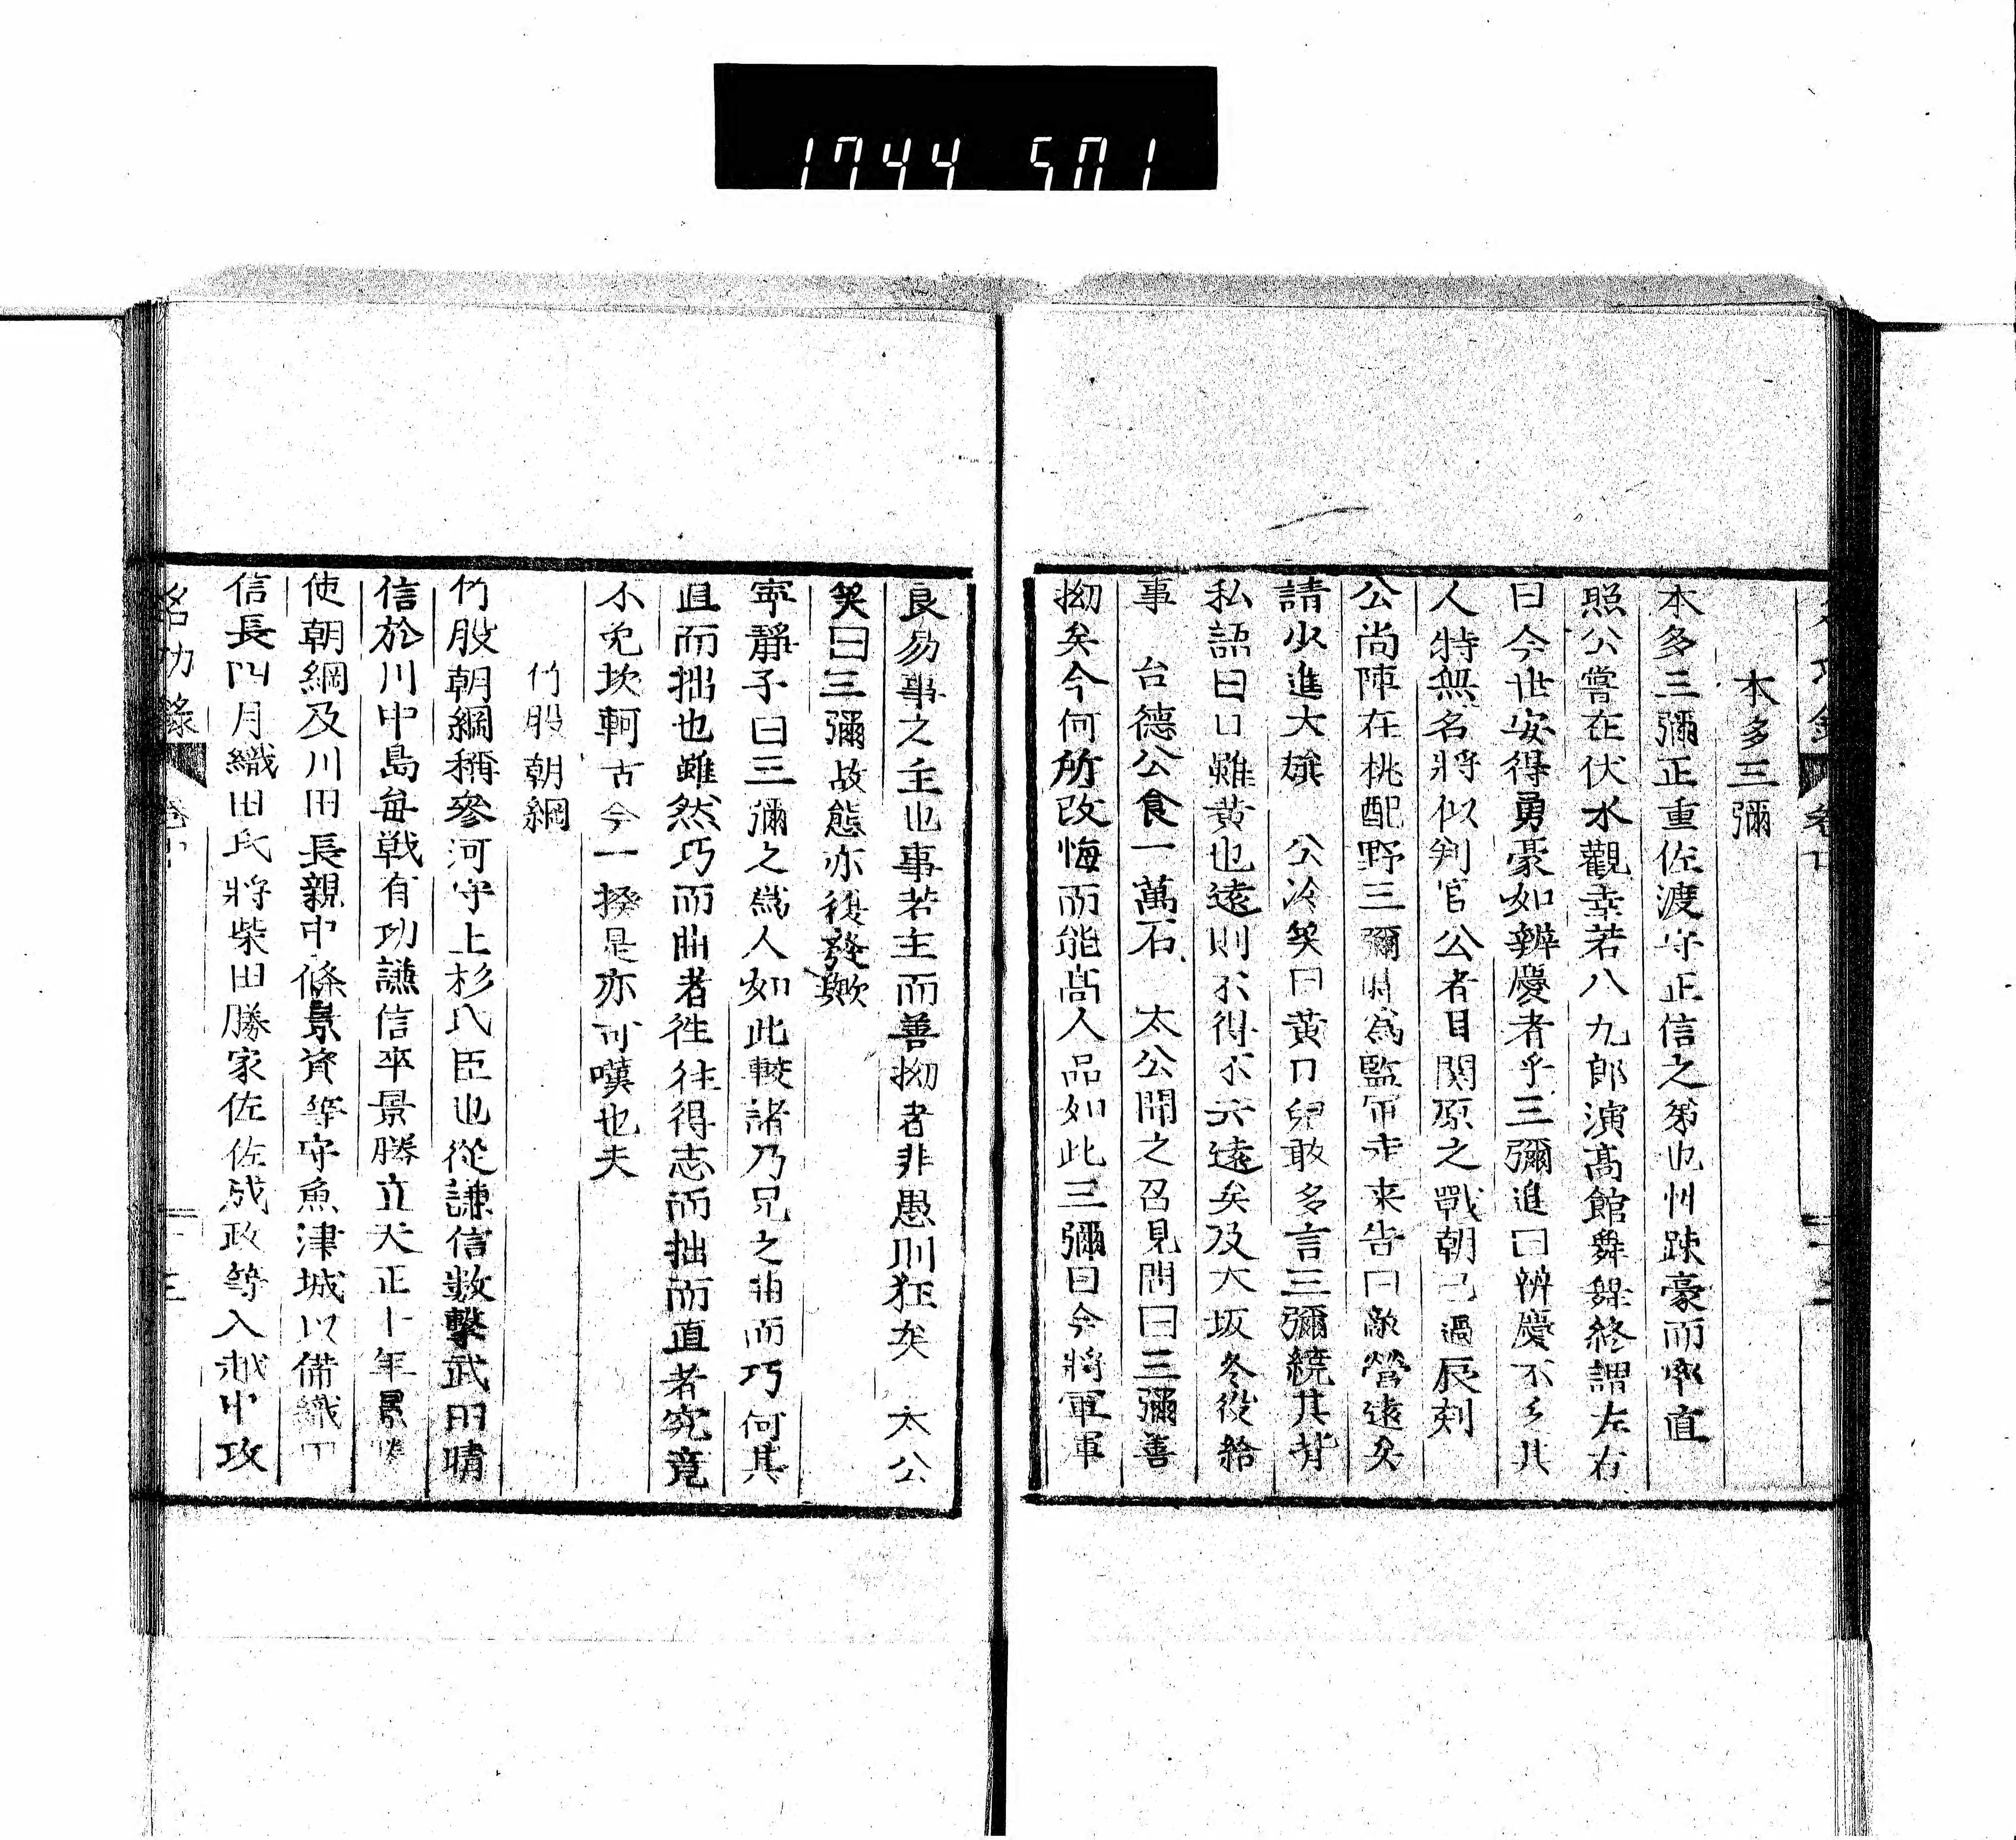 1744 501
本多三彌
本多三彌正重佐渡守正信之弟也性踈豪而率直
照公嘗在伏水觀幸若八九郎演髙館舞舞終謂左右
曰今世安得勇豪如辨慶者乎三彌進曰辨慶不乏其
人特無名將似判官公者目関原之戰朝已過辰刻
公尚陣在桃配野三彌時爲監軍走来告曰敵營遠矣
請少進大纛　公冷笑曰黄口兒敢多言三彌繞其背
私語曰口雖黄也遠則不得不云遠矣及大坂冬役給
事　台德公食一萬石　太公聞之召見問曰三彌善
拗矣今何所改悔而能髙人品如此三彌曰今將軍軍
良易事之主也事若主而善拗者非愚則狂矣　太公
笑曰三彌故態亦復發歟
寜靜子曰三彌之爲人如此較諸乃兄之曲而巧何其
直而拙也雖然巧而曲者徃往得志而拙而直者究竟
不免坎軻古今一揆是亦可嘆也夫
竹股朝綱
竹股朝綱稱參河守上杉氏臣也從謙信數擊武田晴
信於川中島毎戦有功謙信卒景勝立天正十年景勝
使朝綱及川田長親中條景資等守魚津城以備織田
信長四月織田氏將柴田勝家佐佐成政等入越中攻
名功錄